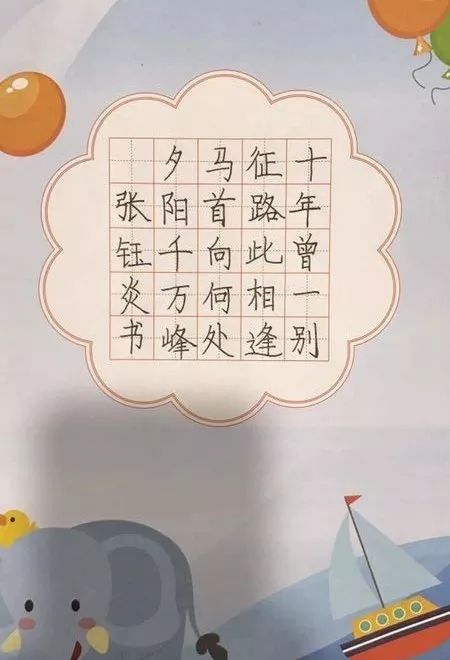 十年曾一别
征路此相逢
马首向何处
夕阳千万峰
张钰炎书